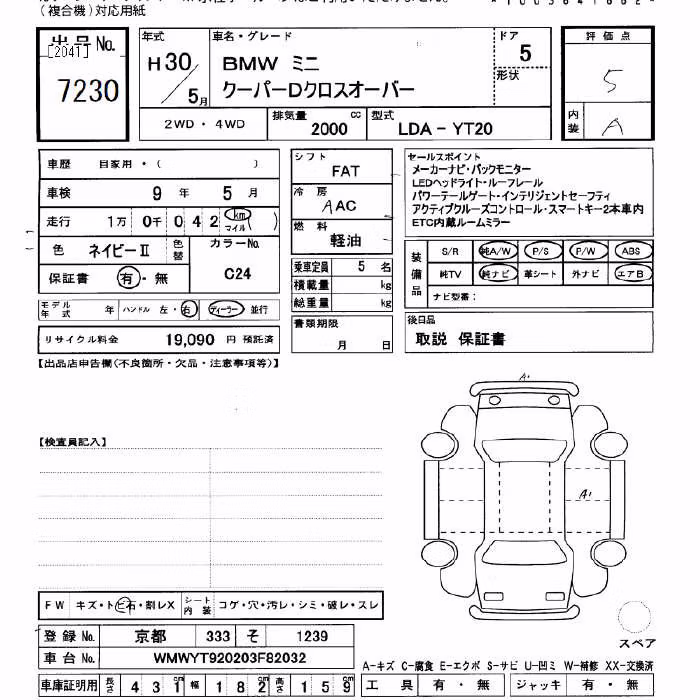 (複合機)対応用紙
出品No. [2041] 7230
年式 H30 / 5月
車名・グレード BMW ミニ クーパーDクロスオーバー
ドア 5
形状
評価点 5
内装 A
2WD・4WD
排気量 2000 cc
型式 LDA-YT20
車歴 自家用・( )
車検 9年 5月
走行 1万 0千 0 4 2 km マイル
色 ネイビーⅡ 色替 カラーNo. C24
保証書 有・無
モデル年式 年 ハンドル 左・右 ディーラー 並行
リサイクル料金 19,090 円 預託済
シフト FAT
冷房 AAC
燃料 軽油
乗車定員 5 名
積載量 kg
総重量 kg
書類期限 月 日
セールスポイント
メーカーナビ・バックモニター
LEDヘッドライト・ルーフレール
パワーテールゲート・インテリジェントセーフティ
アクティブクルーズコントロール・スマートキー2本車内
ETC内蔵ルームミラー
装備品 S/R 純A/W P/S P/W ABS
純TV 純ナビ 革シート 外ナビ エアB
ナビ型番:
後日品
取説 保証書
【出品店申告欄(不良箇所・欠品・注意事項等)】
A1
【検査員記入】
A1
FW キズ・トビ石・割レX シート内装 コゲ・穴・汚レ・シミ・破レ・スレ
登録No. 京都 333 そ 1239
車台No. WMWYT920203F82032
スペア
A-キズ C-腐食 E-エクボ S-サビ U-凹ミ W-補修 XX-交換済
車庫証明用 長さ 431cm 幅 182cm 高さ 159cm
工具 有・無 ジャッキ 有・無